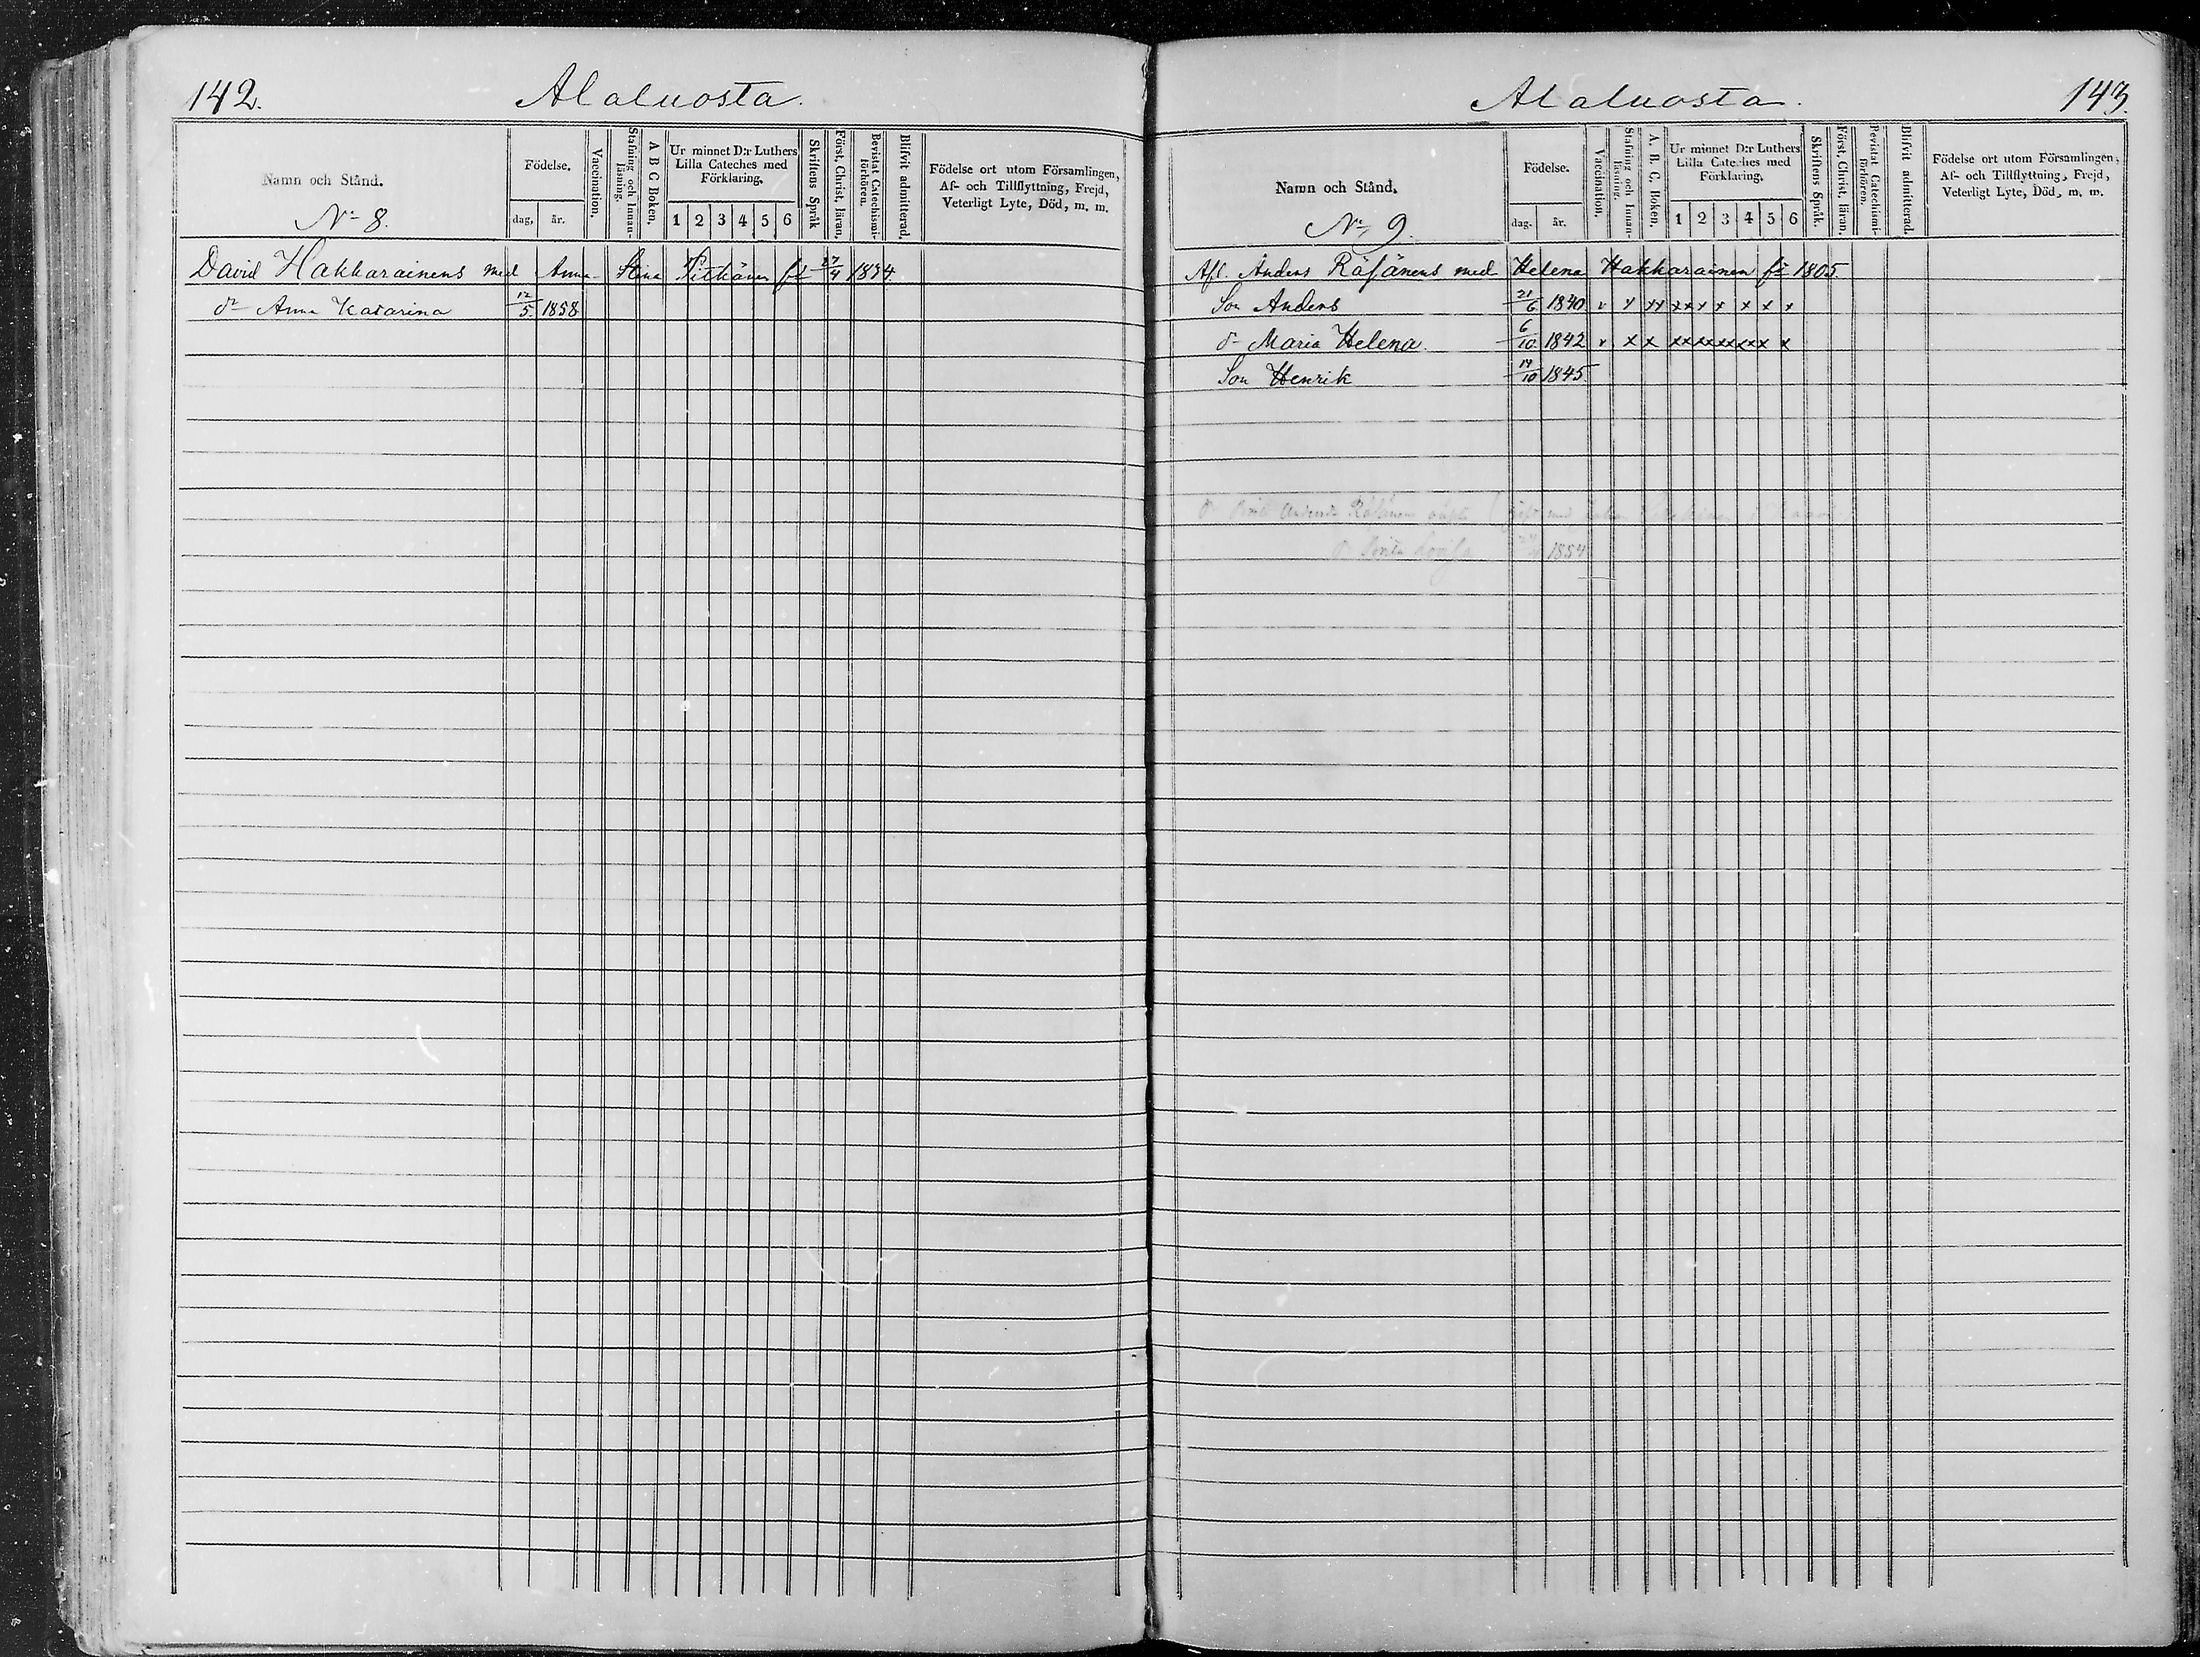 142. Alaluosta.
Namn och Stånd.
No 8.
Födelse.
dag, år.
Vaccination.
Stafning och Innanläsning.
A B C Boken.
Ur minnet D:r Luthers Lilla Cateches med Förklaring.
1 2 3 4 5 6
Skriftens Språk
Först. Christ. läran.
Bevistat Catechismiförhören.
Blifvit admitterad.
Födelse ort utom Församlingen,
Af- och Tillflyttning, Frejd,
Veterligt Lyte, Död, m. m.
David Hakkarainens med Anna Stina Pitkänen fd 27/4 1834.
dr Anna Katarina 12/5 1858
Alaluosta. 143.
Namn och Stånd.
No 9.
Födelse.
dag. år.
Vaccination.
Stafning och Innanläsning.
A. B. C. Boken.
Ur minnet D:r Luthers Lilla Cateches med Förklaring.
1 2 3 4 5 6
Skriftens Språk.
Först. Christ. läran.
Bevistat Catechismiförhören.
Blifvit admitterad.
Födelse ort utom Församlingen,
Af- och Tillflyttning, Frejd,
Veterligt Lyte, Död, m. m.
Afl. Anders Räsänens med Helena Hakkarainen fd 1805.
Son Anders 21/6 1840 v x xx xxx x x x x
dr Maria Helena 6/10 1842 v x x xxxxxxxx x
Son Henrik 14/10 1845.
Räsänens
1854